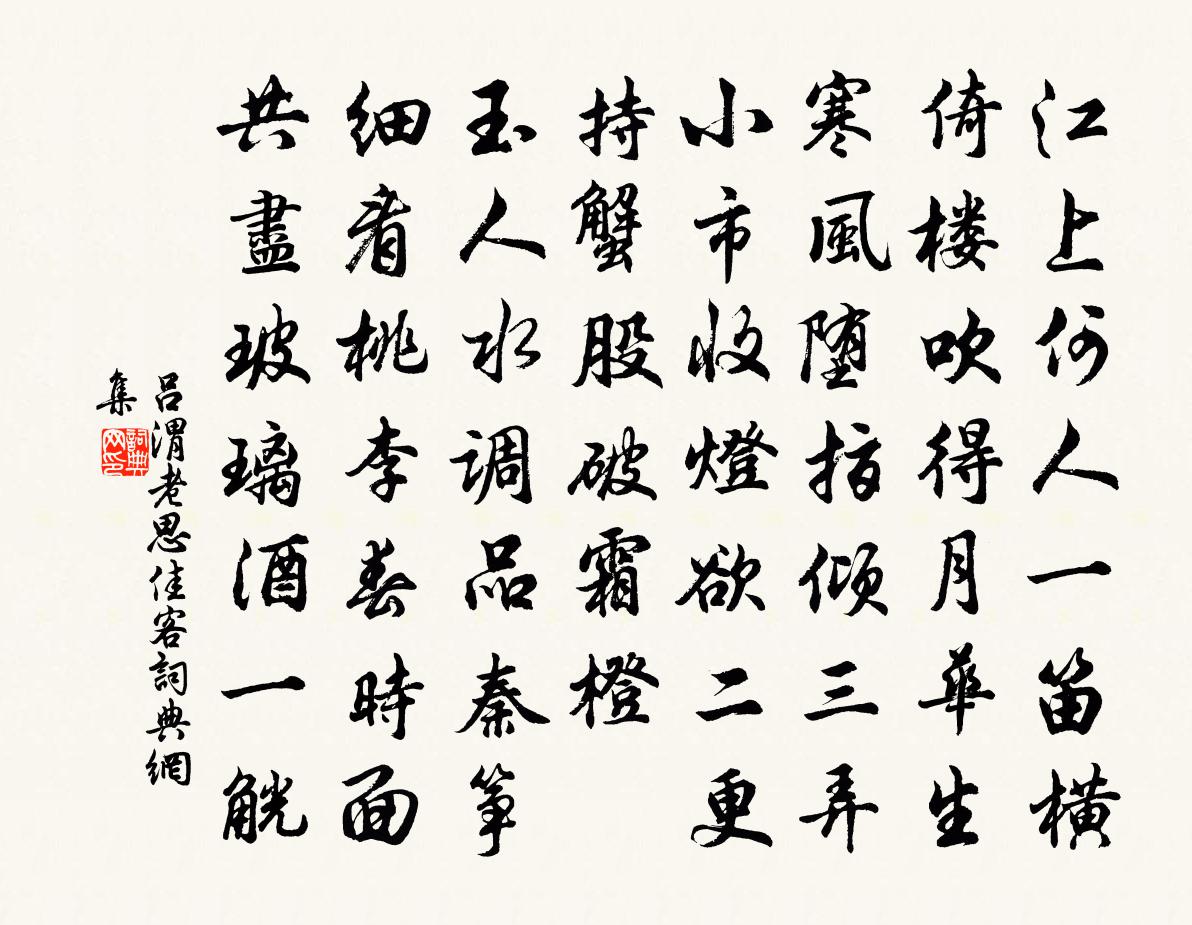 江上何人一笛横
倚楼吹得月華生
寒風堕指倾三弄
小市收燈欲二更
持蟹股破霜橙
玉人水调品秦筝
细看桃李春時面
共盡玻璃酒一觥
吕渭老思佳客詞典網
集
詞典
网印